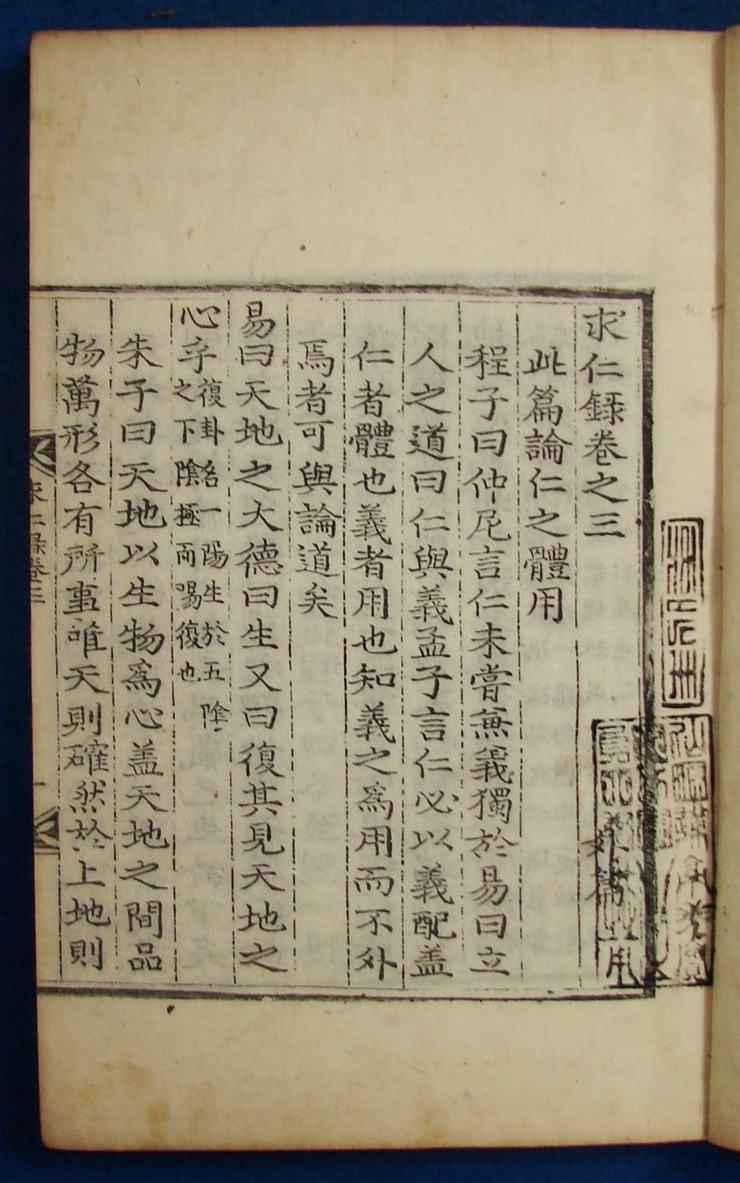 求仁録巻之三
外篇
此篇論仁之體用
程子曰仲尼言仁未嘗兼義獨於易曰立
人之道曰仁與義孟子言仁必以義配盖
仁者體也義者用也知義之爲用而不外
焉者可與論道矣
易曰天地之大德曰生又曰復其見天地之
心乎
復卦名一陽生於五陰
之下陰極而陽復也
朱子曰天地以生物爲心盖天地之間品
物萬形各有所事惟天則確然於上地則
求仁録巻三